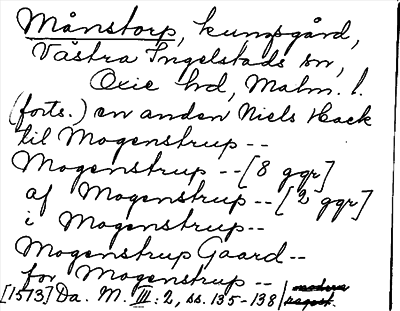 Månstorp, kungsgård,
Västra Ingelstads sn,
Oxie hd, Malm. l.
(forts.) en anden Niels Hack
til Mogenstrup --
Mogenstrup -- [8 ggr]
af Mogenstrup -- [2 ggr]
i Mogenstrup --
Mogenstrup Gaard --
for Mogenstrup --
[1573] Da. M. III: 2, ss. 135-138